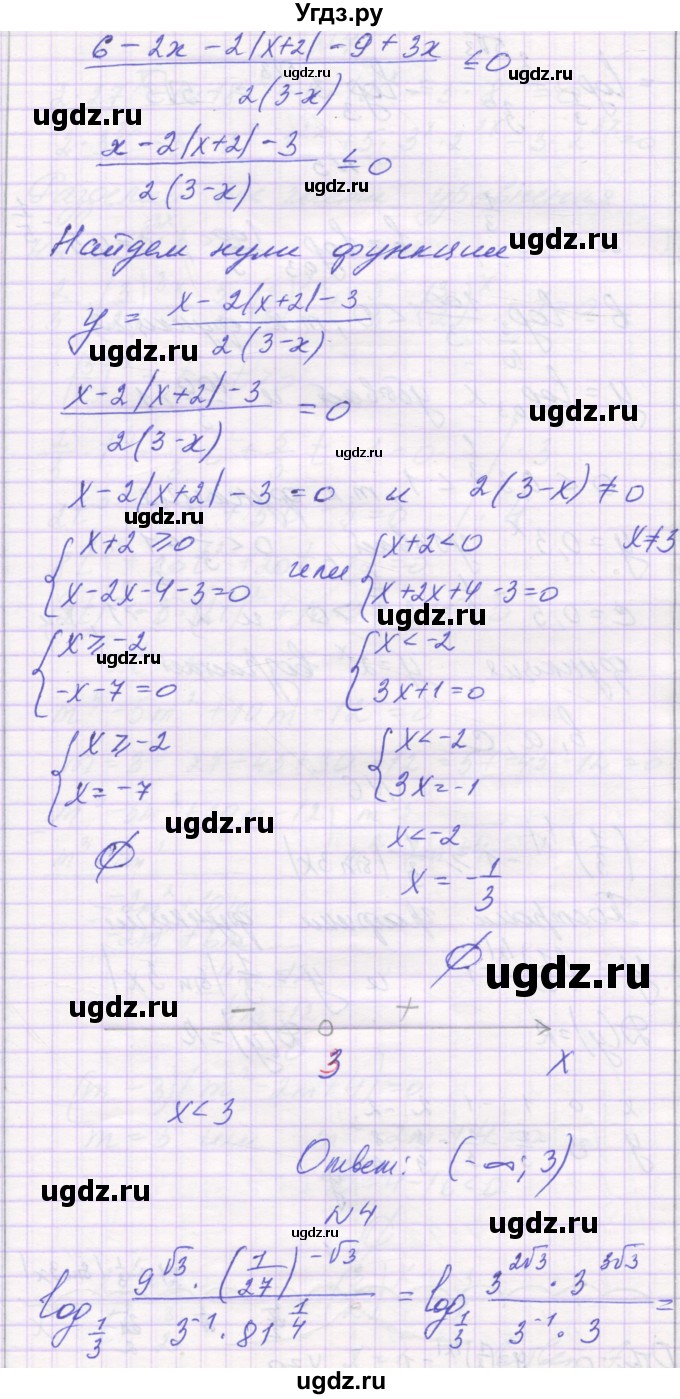 Угдз.ру
(6 - 2x - 2|x+2| - 9 + 3x) / (2(3-x)) ≤ 0
ugdz.ru ugdz.ru
(x - 2|x+2| - 3) / (2(3-x)) ≤ 0
ugdz.ru
Найдем нули функции
ugdz.ru
y = (x - 2|x+2| - 3) / (2(3-x))
ugdz.ru
(x - 2|x+2| - 3) / (2(3-x)) = 0
ugdz.ru
ugdz.ru
x - 2|x+2| - 3 = 0 и 2(3-x) ≠ 0
ugdz.ru
{ x+2 ≥ 0 или { x+2 < 0 x ≠ 3
{ x - 2x - 4 - 3 = 0 { x + 2x + 4 - 3 = 0
ugdz.ru
{ x ≥ -2 { x < -2
ugdz.ru
{ -x - 7 = 0 { 3x + 1 = 0
{ x ≥ -2 { x < -2
{ x = -7 { 3x = -1
ugdz.ru
x < -2
∅ x = -1/3
∅ ugdz.ru
ugdz.ru
- +
3 x
x < 3
Ответ: (-∞; 3)
ugdz.ru
N4
ugdz.ru ugdz.ru
log_{1/3} (9^{√3} · (1/27)^{-√3}) / (3^{-1} · 81^{1/4}) = log_{1/3} (3^{2√3} · 3^{3√3}) / (3^{-1} · 3) =
ugdz.ru